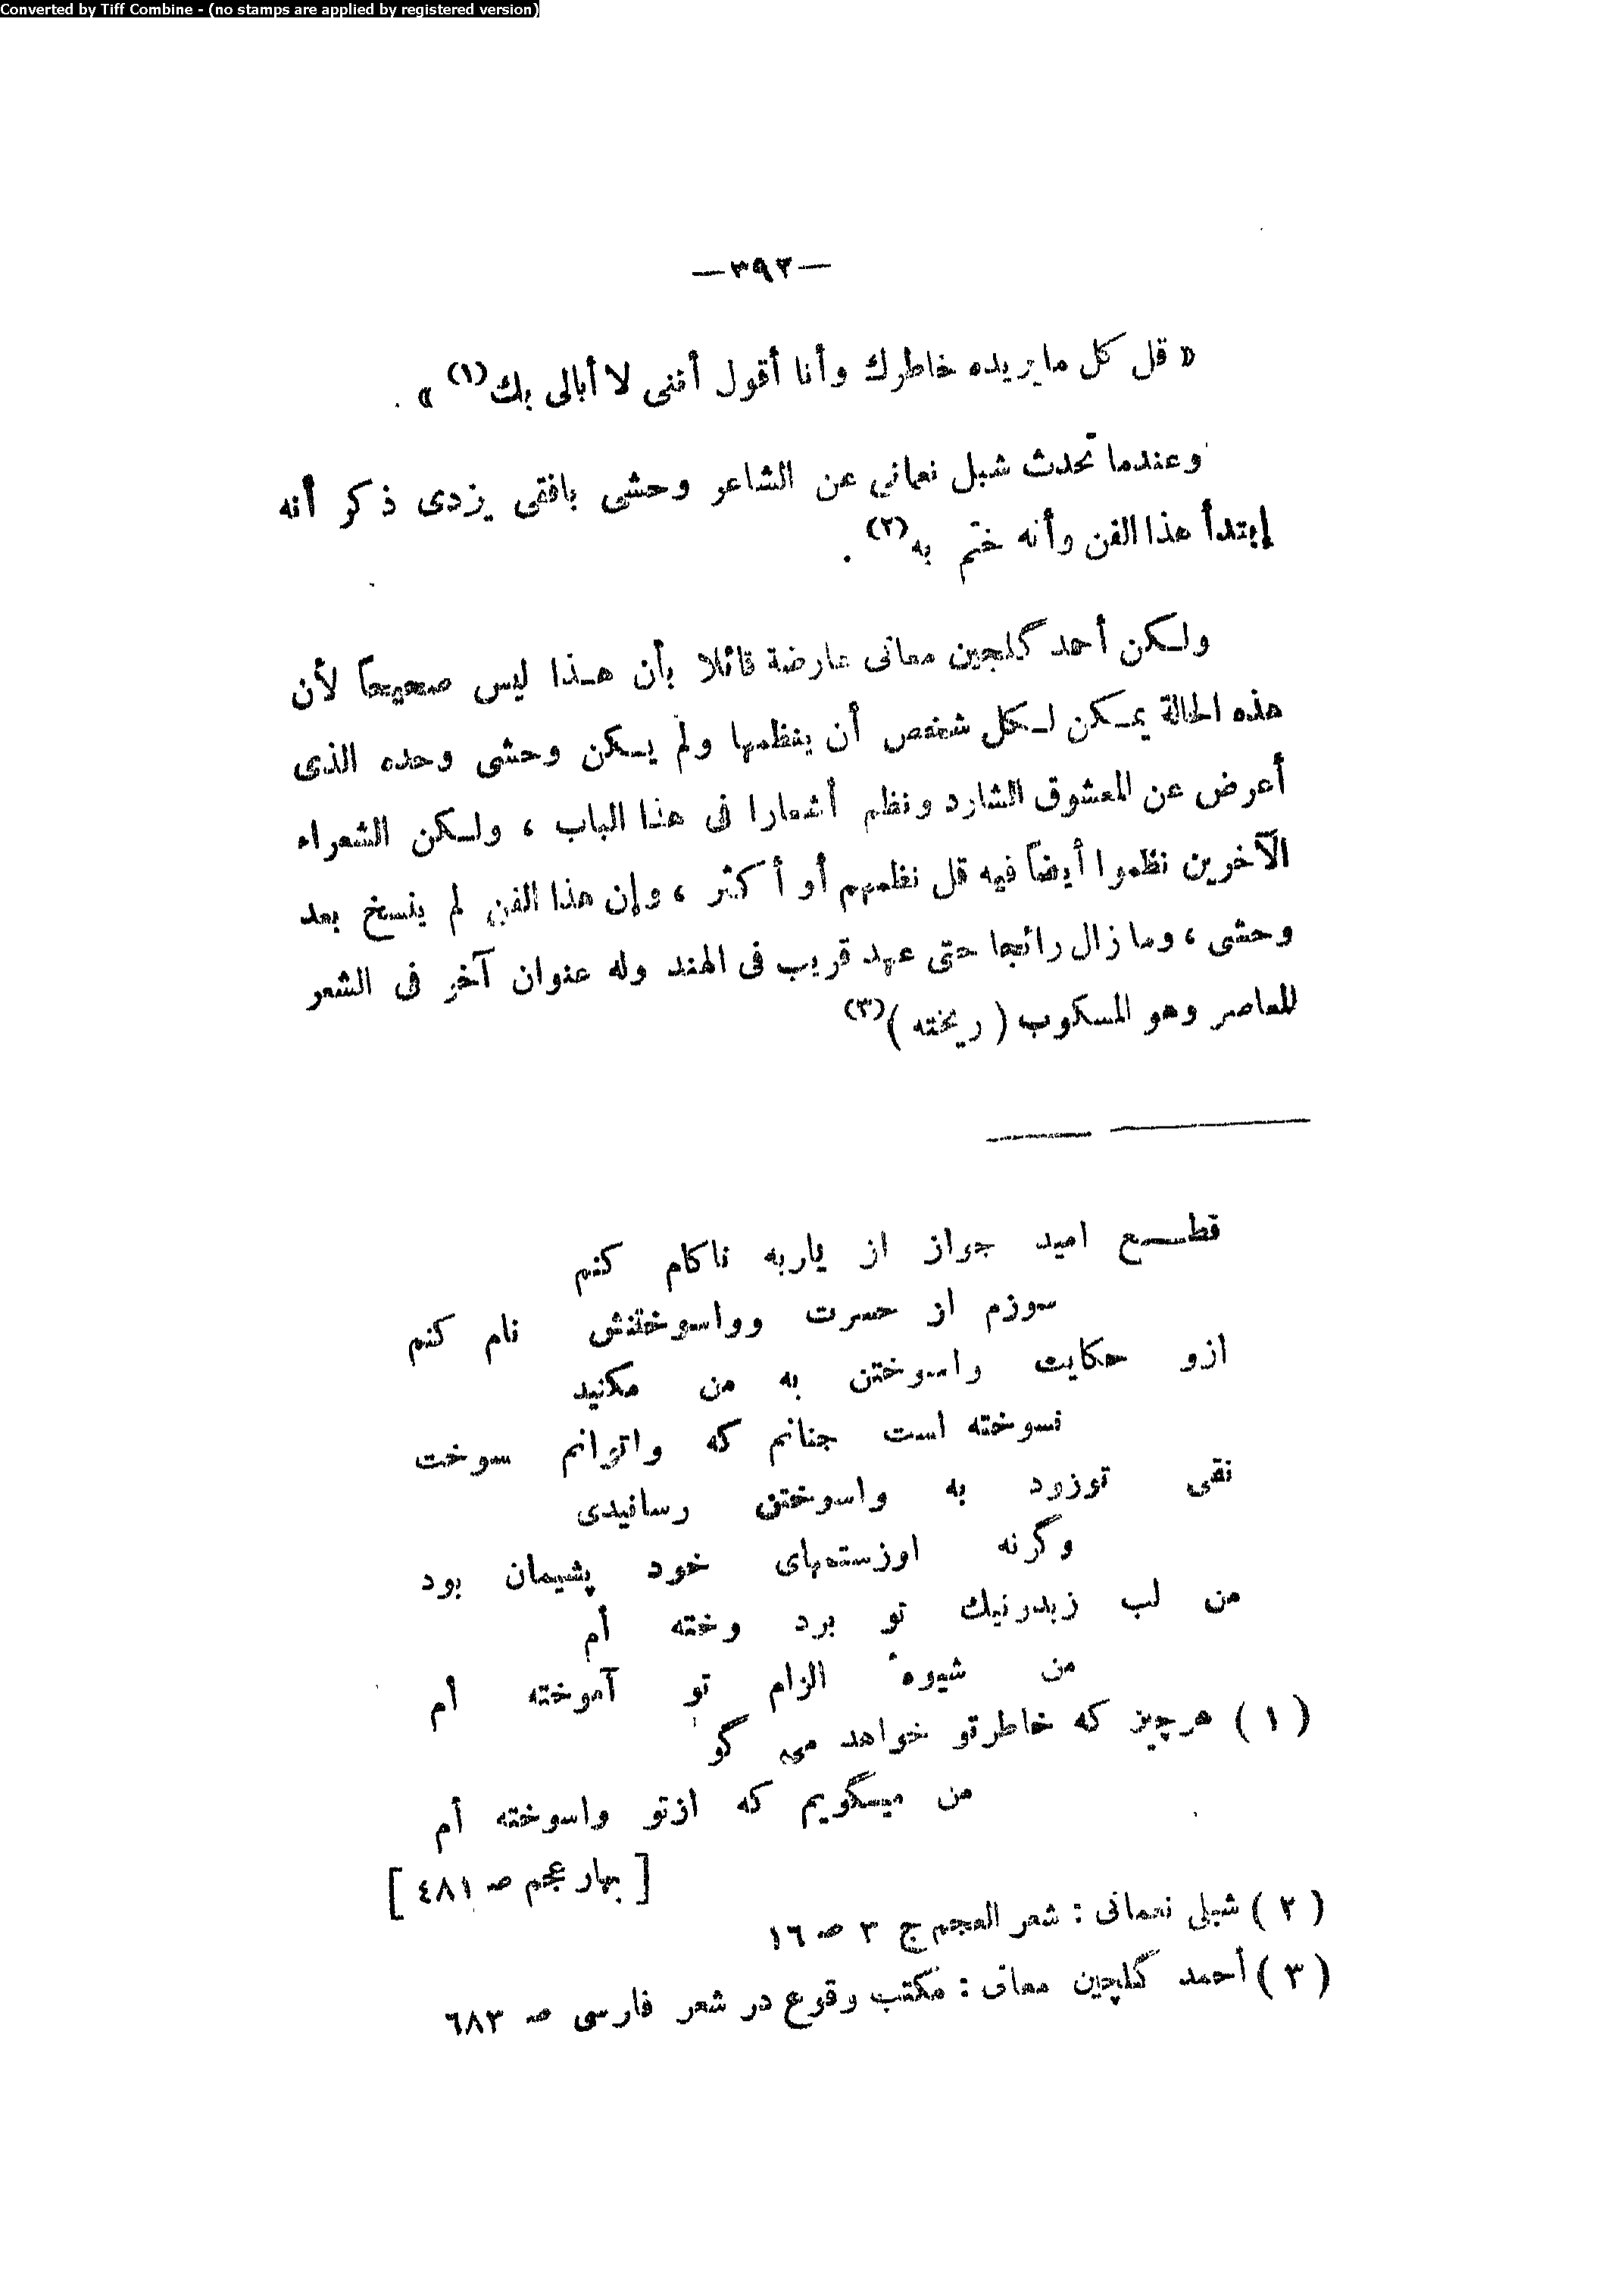 Converted by Tiff Combine - (no stamps are applied by registered version)
—٣٩٢—
« قل كل ما يريده خاطرك وأنا أقول أننى لا أبالى بك (١) » .
وعندما تحدث شبل نعمانى عن الشاعر وحشى بافقى يزدى ذكر أنه
إبتدأ هذا الفن وأنه ختم به (٢) .
ولكن أحمد گلچين معانى عارضة قائلا بأن هذا ليس صحيحاً لأن
هذه الحالة يمكن لكل شخص أن ينظمها ولم يكن وحشى وحده الذى
أعرض عن المعشوق الشارد ونظم أشعارا فى هذا الباب ، ولكن الشعراء
الآخرين نظموا أيضاً فيه قل نظمهم أو أكثر ، وإن هذا الفن لم ينسخ بعد
وحشى ، وما زال رائجا حتى عهد قريب فى الهند وله عنوان آخر فى الشعر
المعاصر وهو المسكوب ( ريخته ) (٣)
قطع اميد جواز از ياربه ناكام كنم
سوزم از حسرت وواسوختنش نام كنم
ازو حكايت واسوختن به من مكنيد
نسوخته است جنانم كه واتوانم سوخت
نقى توزود به واسوختن رسانيدى
وگرنه اوزستمهاى خود پشيمان بود
من لب زبدرنيك تو برد وخته أم
من شيوهٔ الزام تو آموخته أم
( ١ ) هرچيز كه خاطرتو خواهد مى گو
من ميگويم كه ازتو واسوخته أم
[ بهار عجم صـ ٤٨١ ]
( ٢ ) شبلى نعمانى : شعر العجم ج ٣ صـ ١٦
( ٣ ) أحمد گلچين معانى : مكتب وقوع در شعر فارسى صـ ٦٨٣